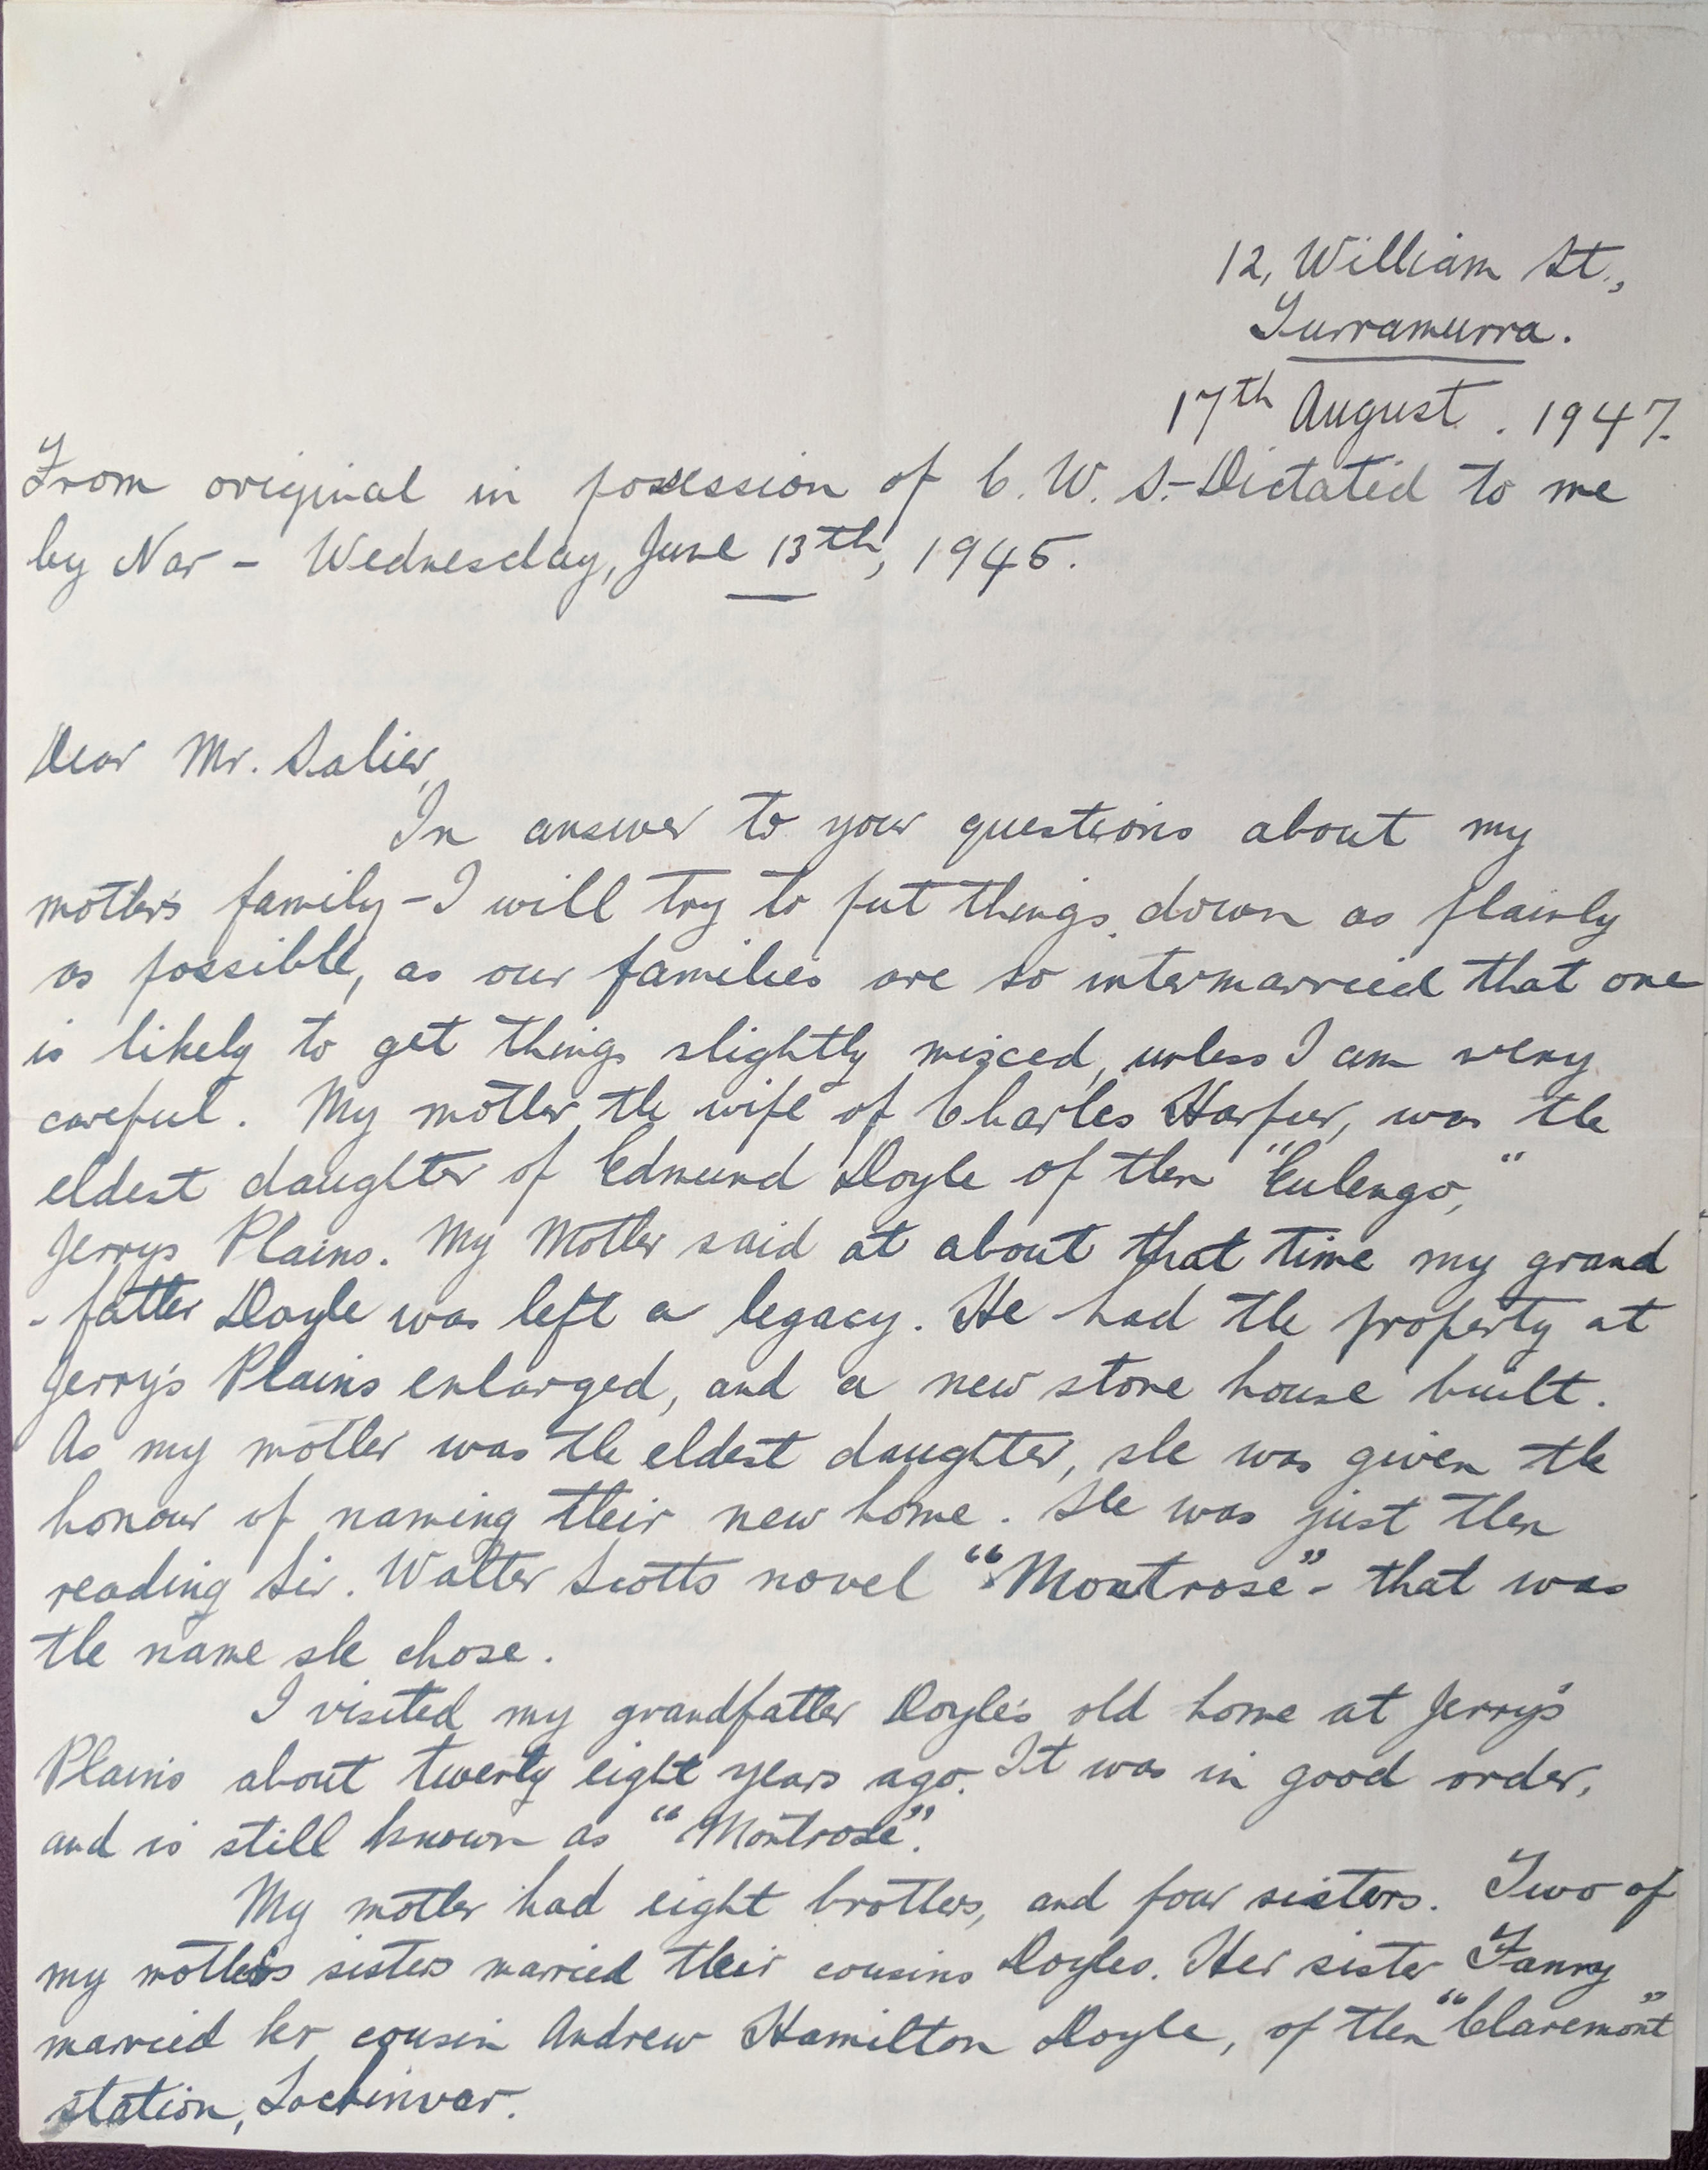 12, William St.,
Turramurra.
17th August . 1947.
From original in possession of C. W. S. - Dictated to me
by Nar - Wednesday, June 13th, 1945.
Dear Mr. Salier,
In answer to your questions about my
mother's family - I will try to put things down as plainly
as possible, as our families are so intermarried that one
is likely to get things slightly mixed, unless I am very
careful. My mother, the wife of Charles Harpur, was the
eldest daughter of Edmund Doyle of then "Eulengo,"
Jerrys Plains. My Mother said at about that time my grand
- father Doyle was left a legacy. He had the property at
Jerry's Plains enlarged, and a new stone house built.
As my mother was the eldest daughter, she was given the
honour of naming their new home. She was just then
reading Sir. Walter Scotts novel "Montrose" - that was
the name she chose.
I visited my grandfather Doyle's old home at Jerry's
Plains about twenty eight years ago. It was in good order,
and is still known as "Montrose".
My mother had eight brothers, and four sisters. Two of
my mother's sisters married their cousins Doyles. Her sister Fanny
married her cousin Andrew Hamilton Doyle, of then "Claremont"
station, Lochinvar.